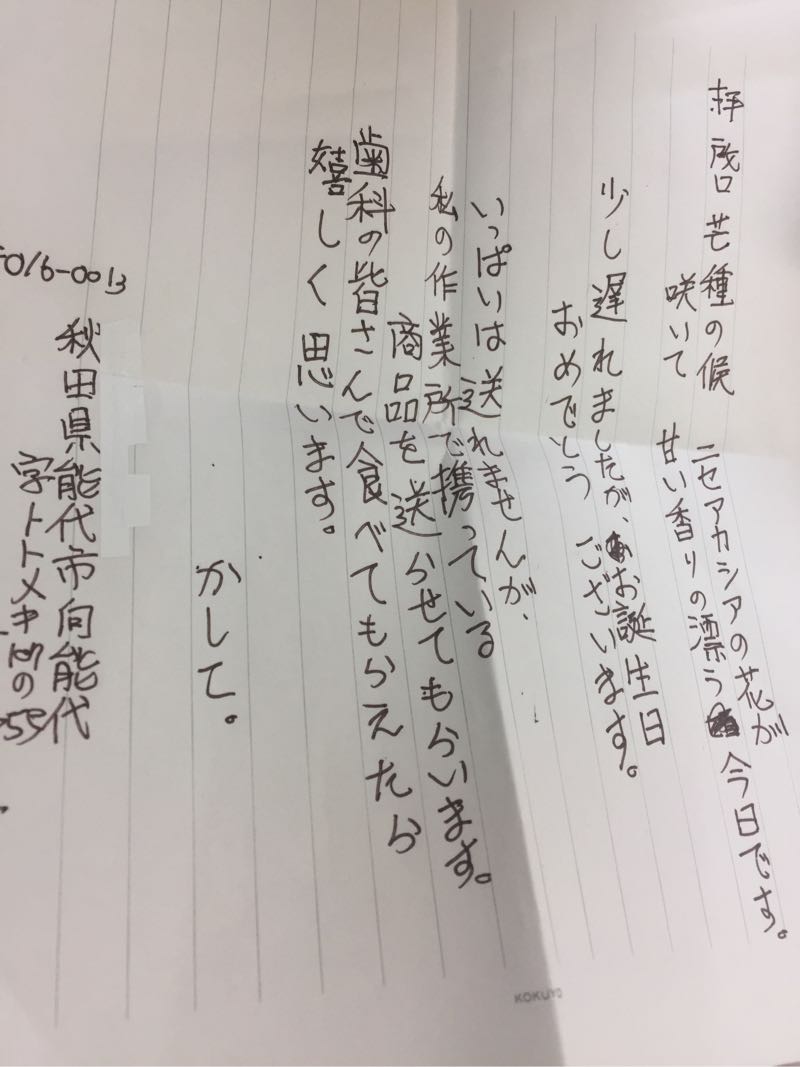 拝啓 芒種の候 ニセアカシアの花が
咲いて 甘い香りの漂う 今日です。
少し遅れましたが、お誕生日
おめでとう ございます。
いっぱいは送れませんが、
私の作業所で携っている
商品を送らせてもらいます。
歯科の皆さんで食べてもらえたら
嬉しく思います。
かして。
016-0013
秋田県能代市向能代
字トトメキ の55
KOKUYO